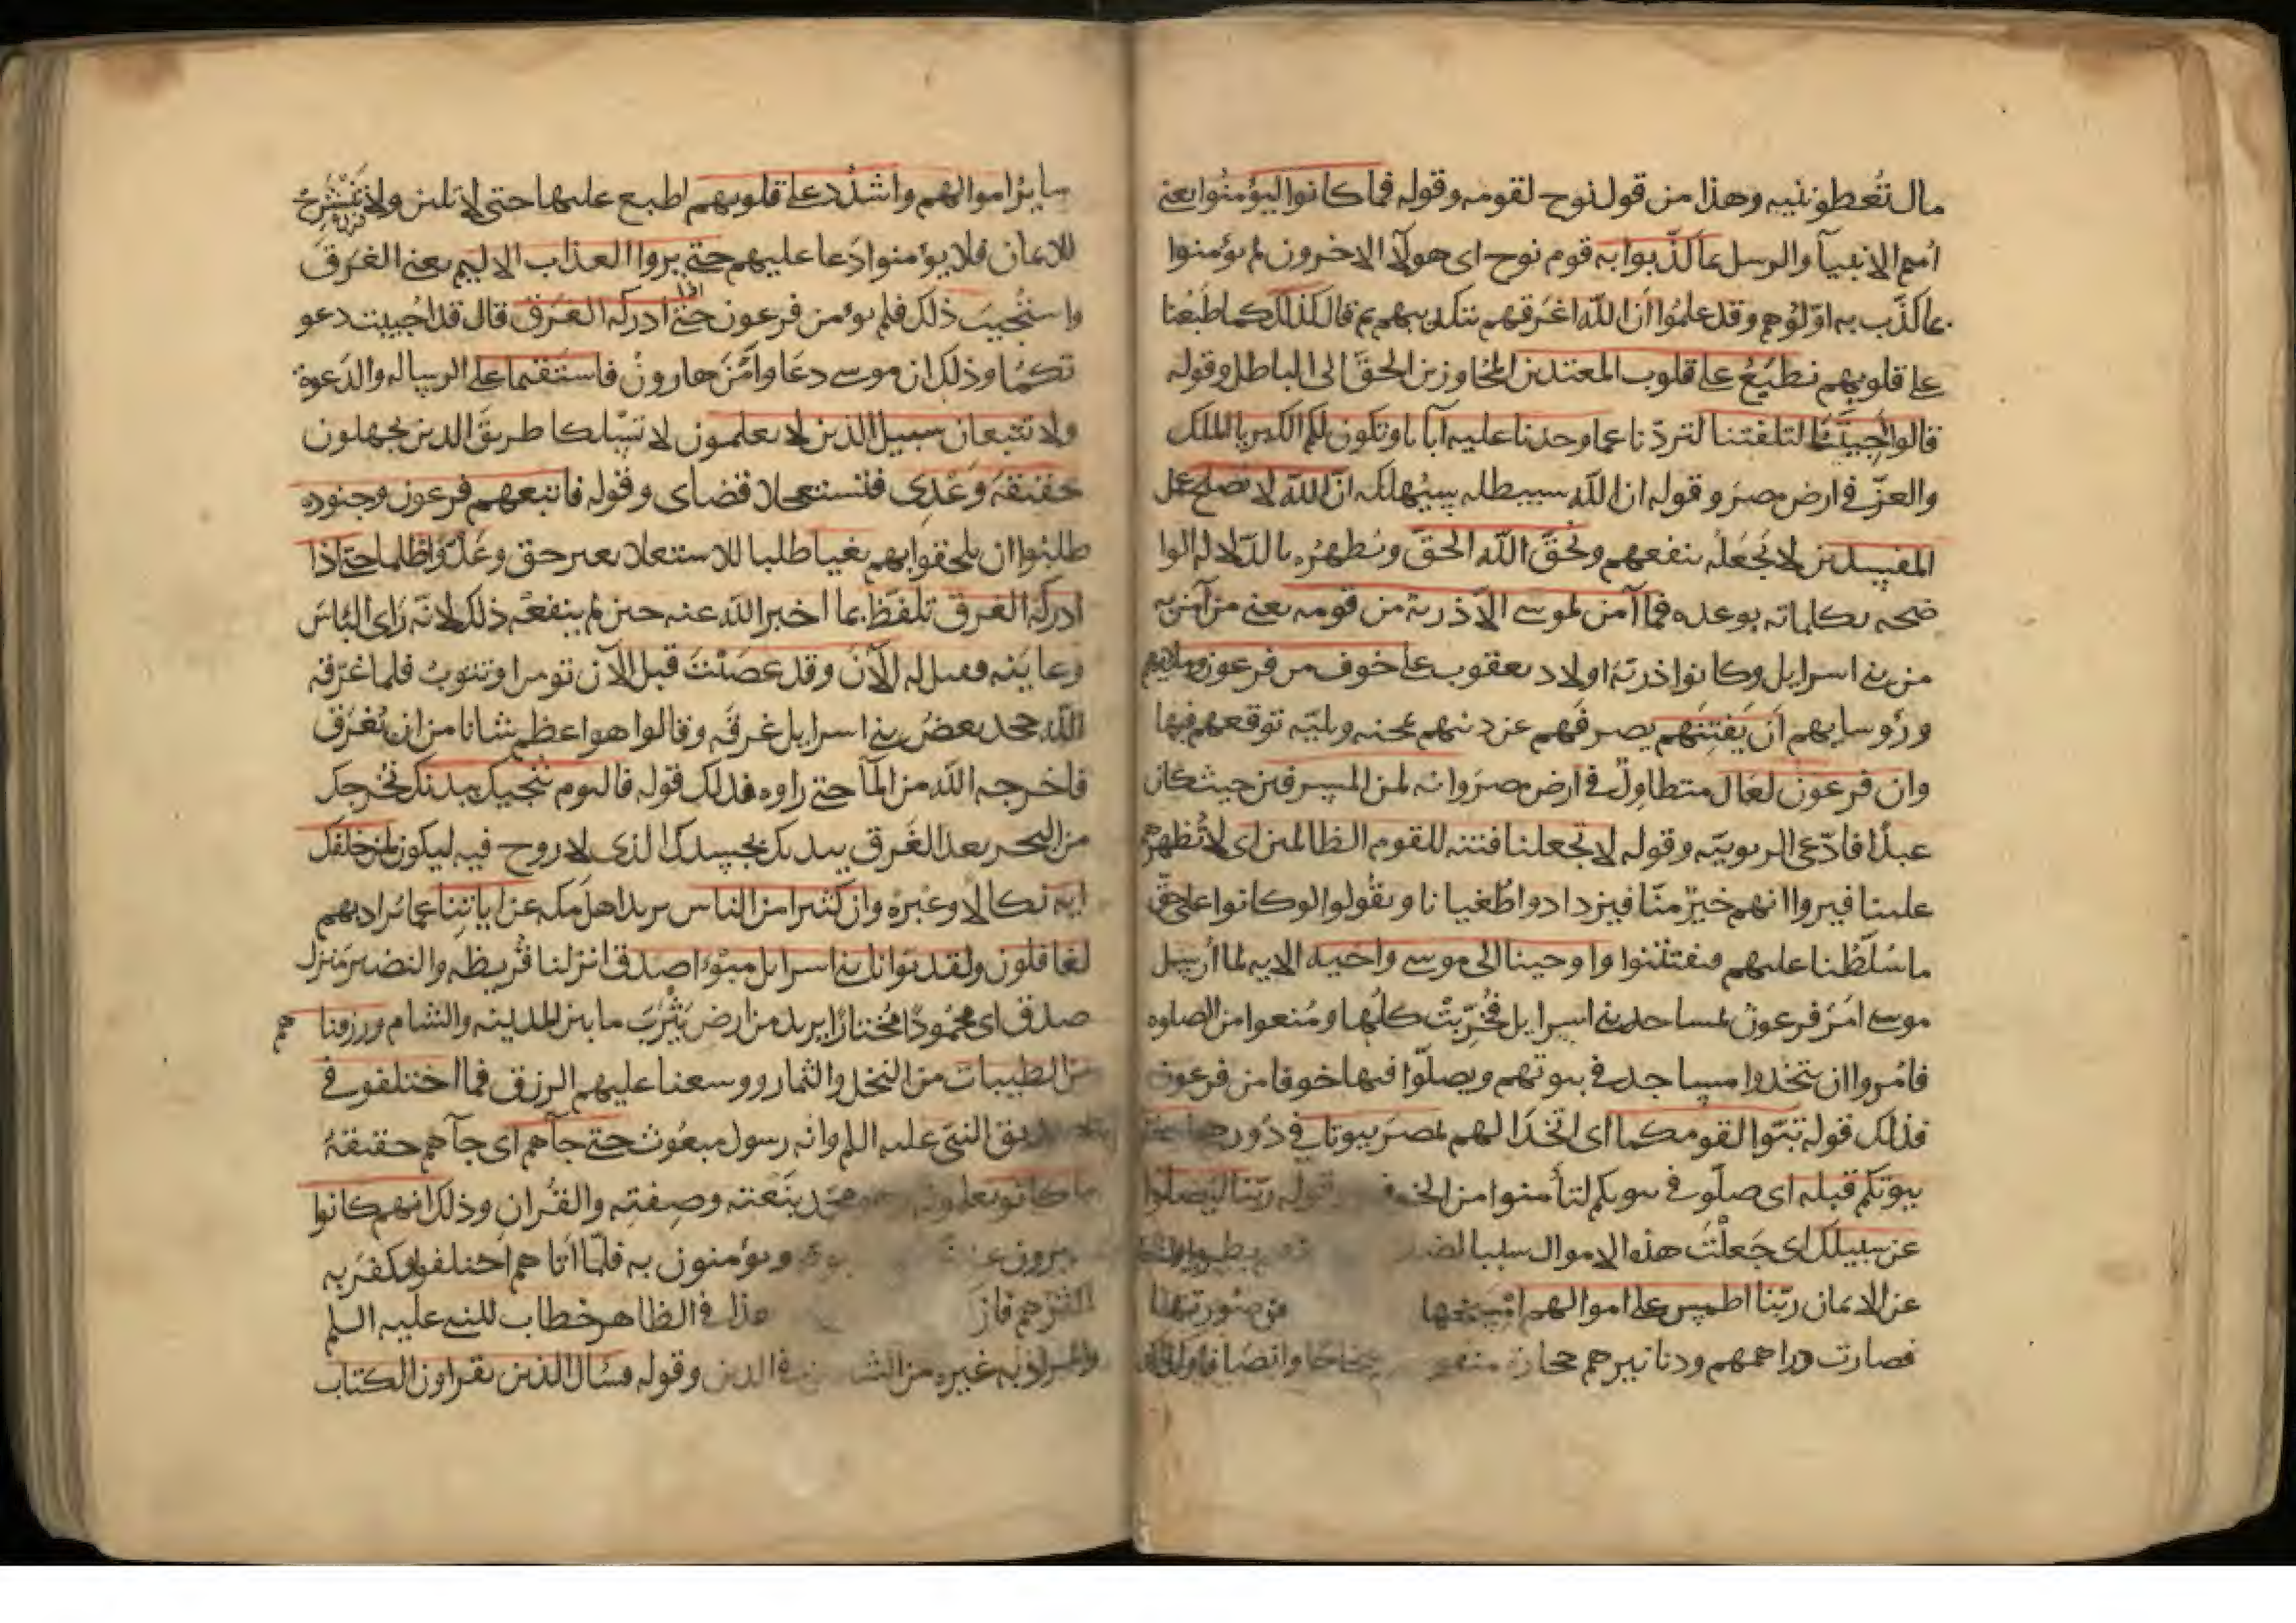 مال تُعطونيه وهذا من قول نوح لقومه وقوله فما كانوا ليؤمنوا يعنى
امم الانبيآ والرسل بما كذّبوا به قوم نوح اى هولآ الاخرون لم يؤمنوا
بما كذّب به اوّلوهم وقد علموا ان الله اغرقهم بتكذيبهم ثم قال كذلك كما طبعنا
على قلوبهم نطبع على قلوب المعتدين المجاوزين الحق الى الباطل وقوله
قالوا اجيتنا لتلفتنا لتردّنا عما وجدنا عليه آبانا وتكون لكما الكبريا الملك
والعزّ فى ارض مصر وقوله ان الله سيبطله سيهلكه ان الله لا يصلح عمل
المفسدين لا يجعله ينفعهم ويحق الله الحق ويظهره بالدلايل الوا
ضحه بكلماته بوعده فما آمن لموسى الا ذرية من قومه يعنى من آمن به
من بنى اسرايل وكانوا ذرية اولاد يعقوب على خوف من فرعون وملايهم
ورؤسايهم ان يفتنهم يصرفهم عن دينهم بمحنه وبليّه توقعهم فيها
وان فرعون لعال متطاول فى ارض مصر وانه لمن المسرفين حيث كان
عبدا فادّعى الربوبيّه وقوله لا تجعلنا فتنه للقوم الظالمين اى لا تُظهرهم
علينا فيروا انهم خير منّا فيزدادوا طغيانا ويقولوا لو كانوا على حق
ما سُلّطنا عليهم فيفتتنوا واوحينا الى موسى واخيه الايه لما أرسل
موسى امر فرعون بمساجد بنى اسرايل فخُرّبت كلها ومُنعوا من الصلوه
فامُروا ان يتخذوا مساجد فى بيوتهم ويصلّوا فيها خوفا من فرعون
فذلك قوله تبوّا لقومكما اى اتخذا لهم بمصر بيوتا فى دورهم
بيوتكم قبله اى صلّوا فى بيوتكم لتأمنوا من الخوف قوله ربّنا ليضلوا
عن سبيلك اى جَعلْت هذه الاموال سببا
عن الايمان ربّنا اطمس على اموالهم امسخها عن صورتها
فصارت دراهمهم ودنانيرهم حجارة صحاحا وانصافا وكذلك
ساير اموالهم واشدد على قلوبهم اطبع عليها حتى لا تلين ولا تنشرح
للايمان فلا يؤمنوا دعا عليهم حتى يروا العذاب الاليم يعنى الغرق
واستُجيب ذلك فلم يؤمن فرعون حتى اذا ادركه الغرق قال قد اجيبت دعو
تكما وذلك ان موسى دعا وامّن هارون فاستقيما على الرساله والدعوة
ولا تتبعان سبيل الذين لا يعلمون لا تسلكا طريق الذين يجهلون
حقيقة وعدى فتستعجلا قضاى وقوله فاتبعهم فرعون وجنوده
طلبوا ان يلحقوا بهم بغيا طلبا للاستعلا بغير حق وعدوا ظلما حتى اذا
ادركه الغرق تلفّظ بما اخبر الله عنه حين لم ينفعه ذلك لانه رأى البأس
وعاينه فقيل له الآن وقد عصيت قبل الآن تومر او تتوب فلما غرّقه
الله جحد بعض بنى اسرايل غرقه وقالوا هو اعظم شانا من ان يُغرق
فاخرجه الله من المآ حتى راوه فذلك قوله فاليوم ننجيك ببدنك نُخرجك
من البحر بعد الغرق ببدنك بجسدك الذى لا روح فيه لتكون لمن خلفك
ايه نكالا وعبرة وان كثيرا من الناس يريد اهل مكه عن اياتنا عما يراد بهم
لغافلون ولقد بوّانا بنى اسرايل مبوّا صدق انزلنا قُريظه والنضير منزل
صدق اى محمودا مختارا يريد من ارض يثرب ما بين المدينه والشام ورزقناهم
من الطيبات من النخل والثمار ووسعنا عليهم الرزق فما اختلفوا فى
تصديق النبى عليه السلم وانه رسول مبعوث حتى جآهم اى جآهم حقيقة
ما كانوا يعلمون محمد بنعته وصفته والقُرآن وذلك انهم كانوا
يخبرون عن ويؤمنون به فلمّا اتاهم اختلفوا فكفر به
اكثرهم فان هذا فى الظاهر خطاب للنبى عليه السلم
والمراد به غيره من الشاكين فى الدين وقوله فسال الذين يقراون الكتاب